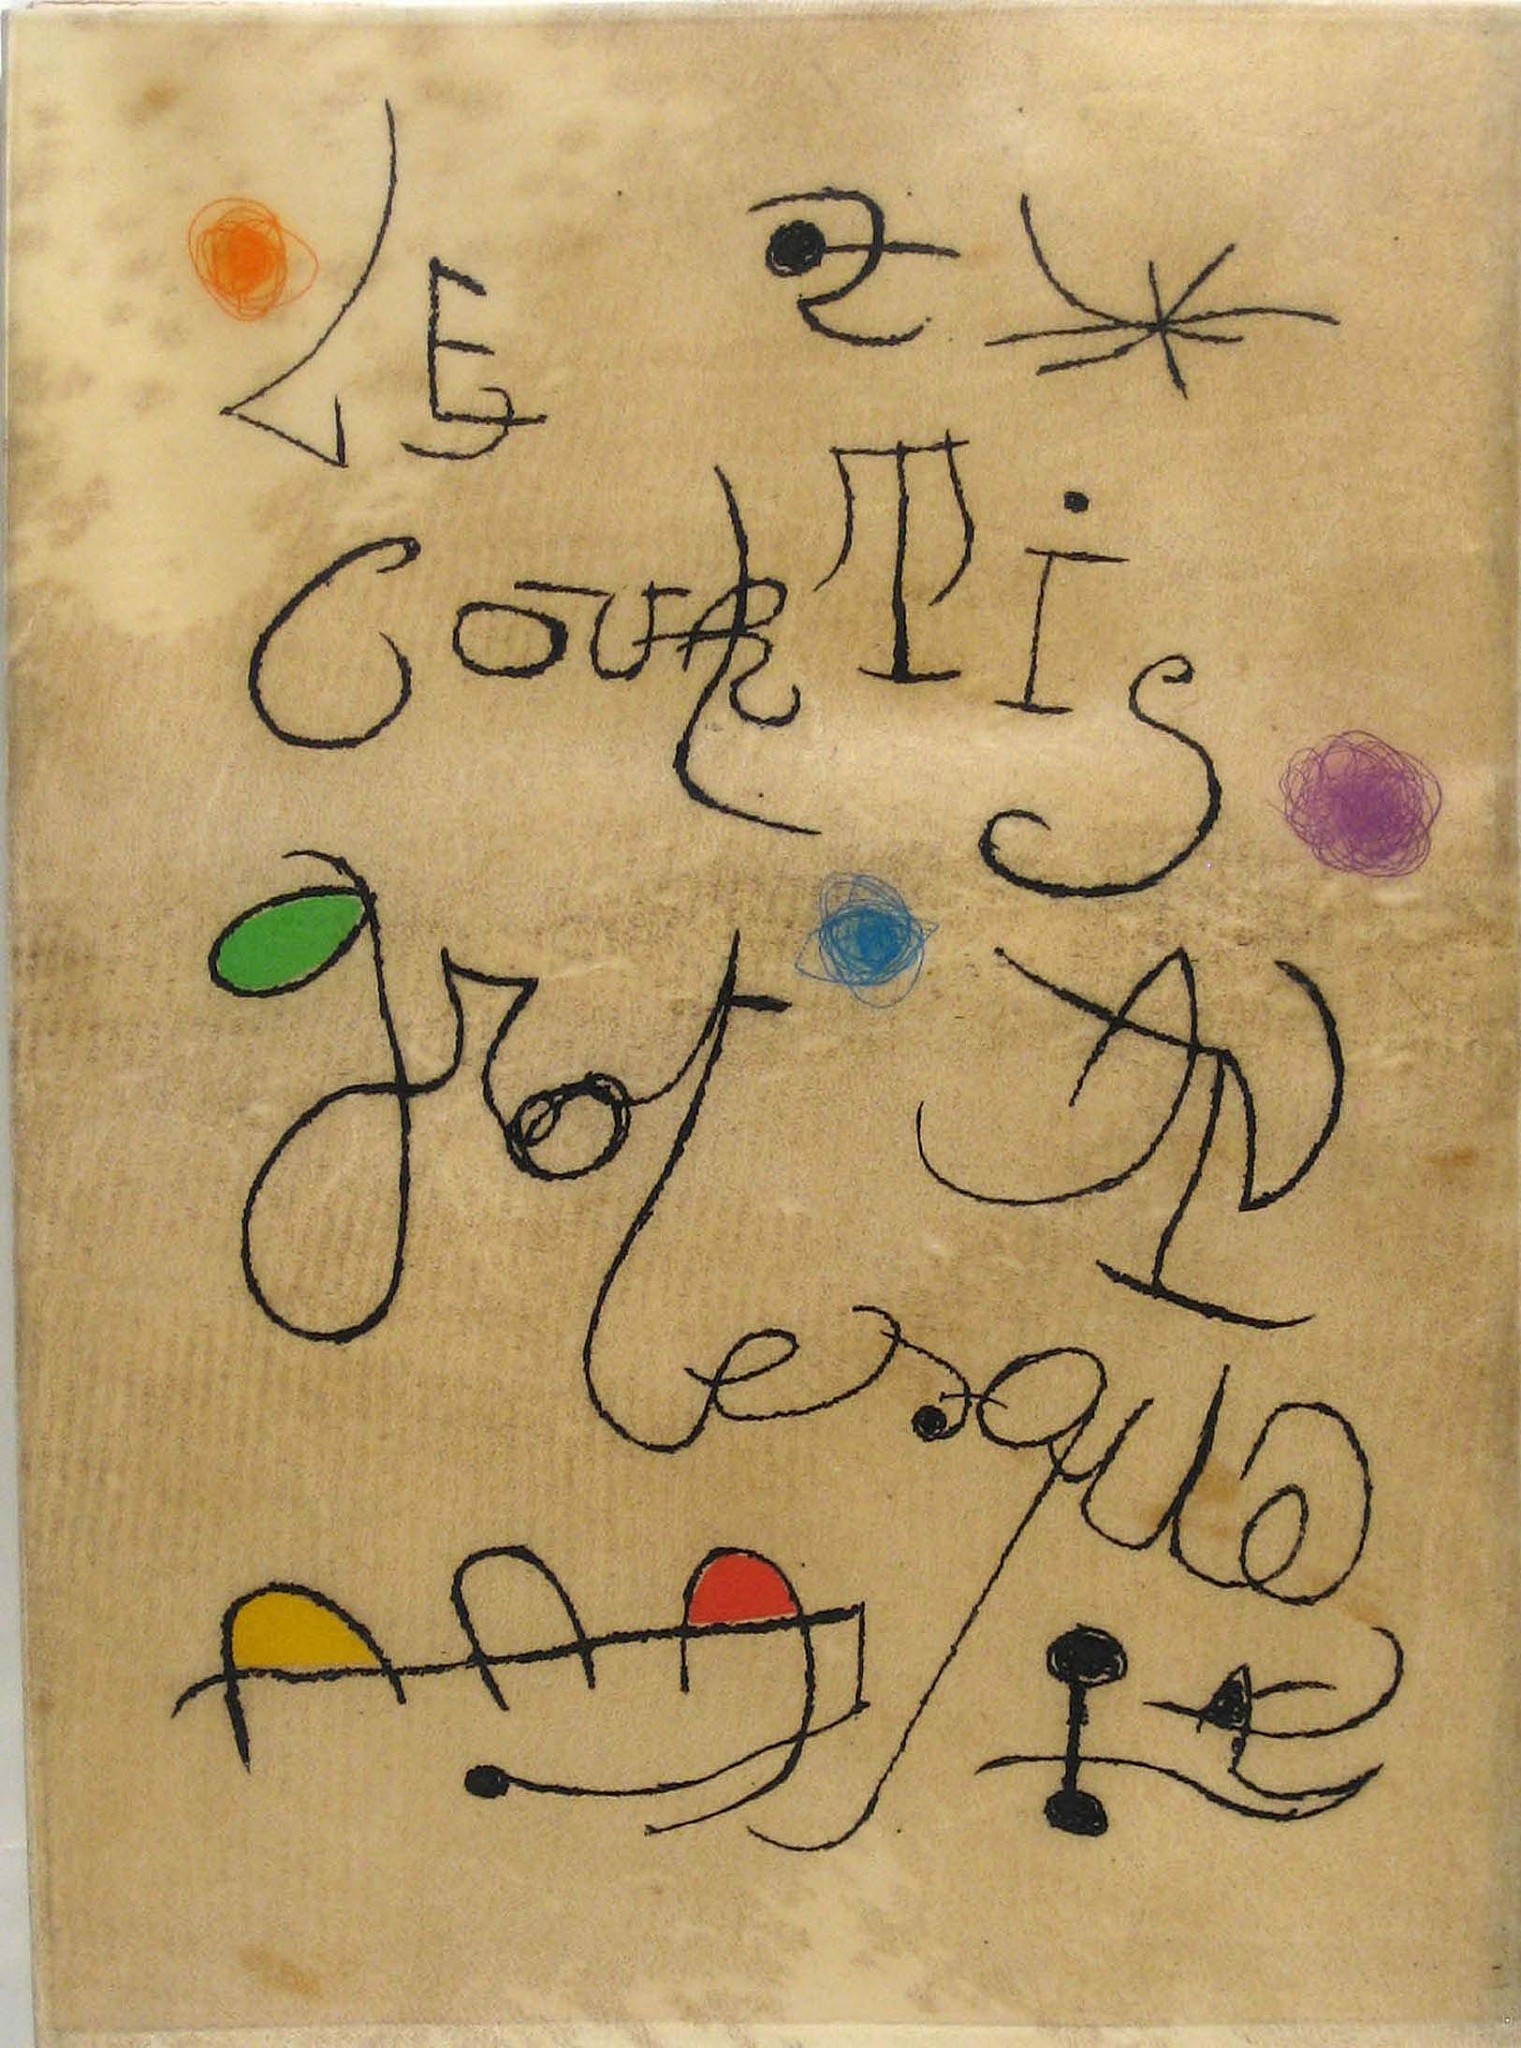 LE
CouRTis
grotesque